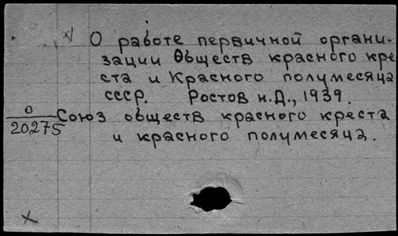 О работе первичной органи-
зации Обществ красного кре
ста и Красного полумесяца
СССР. Ростов н.Д., 1939.
О
20275
Союз обществ красного креста
и красного полумесяца.
х